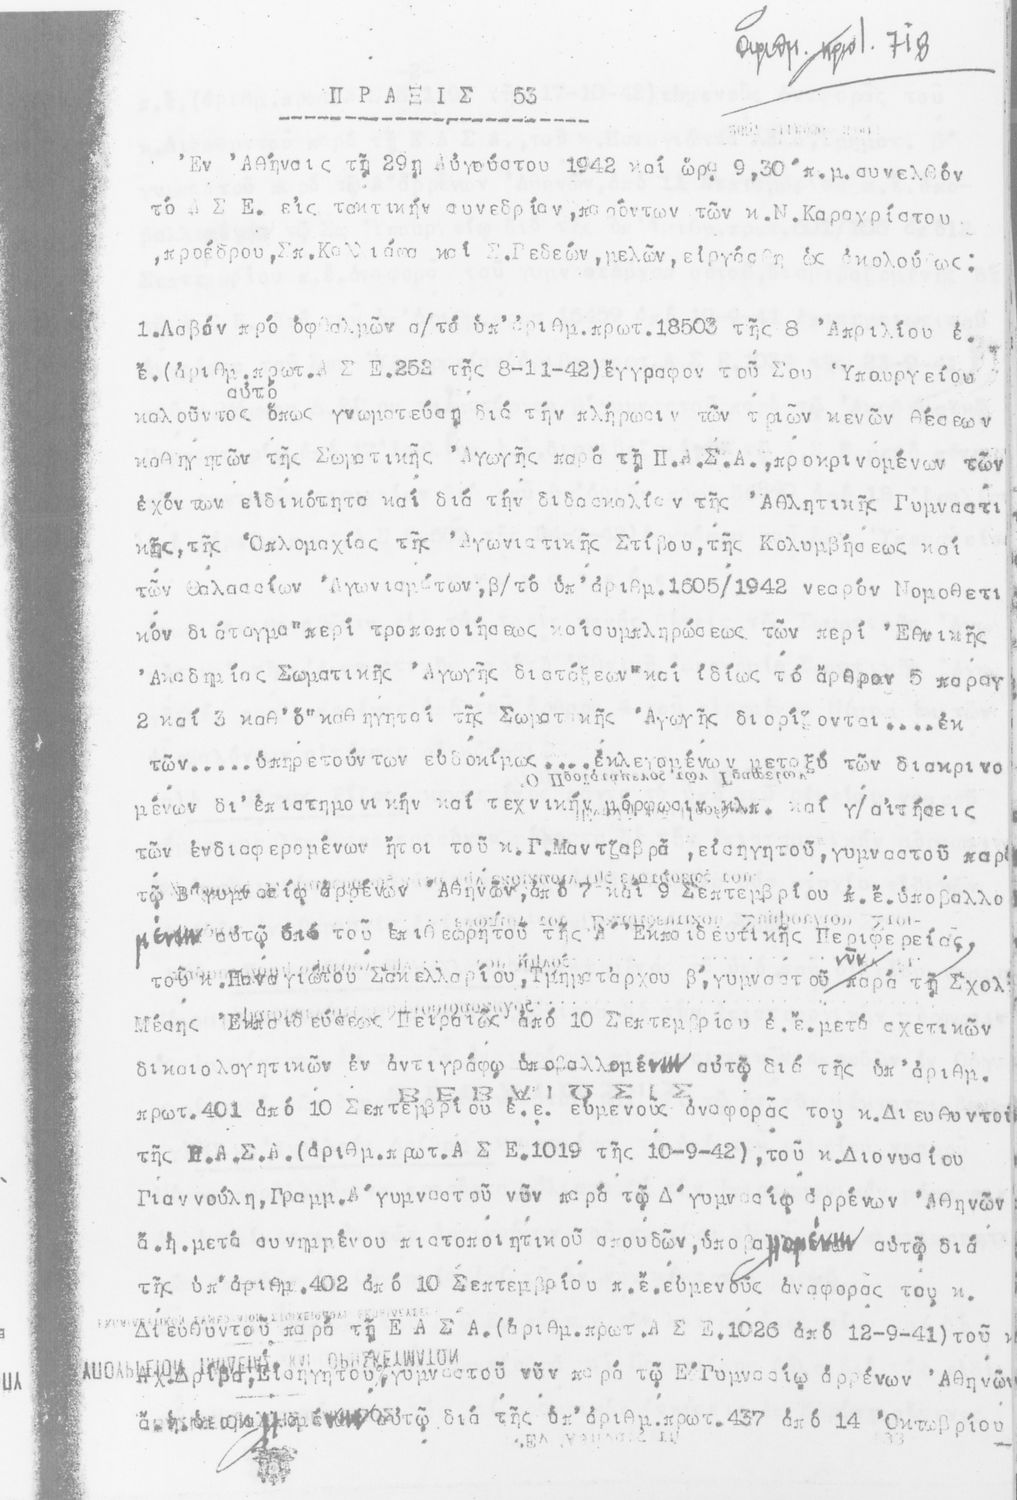 ἀριθμ. πρωτ. 718
ΠΡΑΞΙΣ 53
Ἐν Ἀθήναις τῇ 29η Αὐγούστου 1942 καί ὥρᾳ 9,30 π.μ.συνελθόν
τό Α Σ Ε. εἰς τακτικήν συνεδρίαν,παρόντων τῶν κ.Ν.Καραχρίστου
,προέδρου,Σπ.Καλλιάφα καί Σ.Γεδεών,μελῶν,εἰργάσθη ὡς ἀκολούθως:
1.Λαβόν πρό ὀφθαλμῶν α/τό ὑπ'ἀριθμ.πρωτ.18503 τῆς 8 Ἀπριλίου ἐ.
ἔ.(ἀριθμ.πρωτ.Α Σ Ε.252 τῆς 8-11-42)ἔγγραφον τοῦ Σου Ὑπουργείου
αὐτό
καλοῦντος ὅπως γνωματεύσῃ διά τήν πλήρωσιν τῶν τριῶν κενῶν θέσεων
καθηγητῶν τῆς Σωματικῆς Ἀγωγῆς παρά τῇ Π.Α.Σ.Α.,προκρινομένων τῶν
ἐχόντων εἰδικότητα καί διά τήν διδασκαλίαν τῆς Ἀθλητικῆς Γυμναστι
κῆς,τῆς Ὁπλομαχίας τῆς Ἀγωνιστικῆς Στίβου,τῆς Κολυμβήσεως καί
τῶν Θαλασσίων Ἀγωνισμάτων,β/τό ὑπ'ἀριθμ.1605/1942 νεαρόν Νομοθετι
κόν διάταγμα"περί τροποποιήσεως καίσυμπληρώσεως τῶν περί Ἐθνικῆς
Ἀκαδημίας Σωματικῆς Ἀγωγῆς διατάξεων"καί ἰδίως τό ἄρθρον 5 παραγ
2 καί 3 καθ'ὅ"καθηγηταί τῆς Σωματικῆς Ἀγωγῆς διορίζονται....ἐκ
τῶν.....ὑπηρετούντων εὐδοκίμως....ἐκλεγομένων μεταξύ τῶν διακρινο
μένων δι'ἐπιστημονικήν καί τεχνικήν μόρφωσιν κλπ. καί γ/αἰτήσεις
τῶν ἐνδιαφερομένων ἤτοι τοῦ κ.Γ.Μαντζαβρᾶ ,εἰσηγητοῦ,γυμναστοῦ παρά
τῷ Β΄γυμνασίῳ ἀρρένων Ἀθηνῶν,ἀπό 7 καί 9 Σεπτεμβρίου ἐ.ἔ.ὑποβαλλο
αὐτῷ ὑπό τοῦ ἐπιθεωρητοῦ τῆς Α΄ Ἐκπαιδευτικῆς Περιφερείας,
νῦν
τοῦ κ.Παναγιώτου Σακελλαρίου,Τμηματάρχου β΄,γυμναστοῦ παρά τῇ Σχολ
Μέσης Ἐκπαιδεύσεως Πειραιῶς ἀπό 10 Σεπτεμβρίου ἐ.ἔ.μετά σχετικῶν
δικαιολογητικῶν ἐν ἀντιγράφῳ αὐτῷ διά τῆς ὑπ'ἀριθμ.
πρωτ.401 ἀπό 10 Σεπτεμβρίου ἐ.ἔ. εὐμενοῦς ἀναφορᾶς του κ.Διευθυντοῦ
τῆς Π.Α.Σ.Α.(ἀριθμ.πρωτ.Α Σ Ε.1019 τῆς 10-9-42),τοῦ κ.Διονυσίου
Γιαννούλη,Γραμμ.Α΄γυμναστοῦ νῦν παρά τῷ Δ΄γυμνασίῳ ἀρρένων Ἀθηνῶν
ἄ.ἡ.μετά συνημμένου πιστοποιητικοῦ σπουδῶν, αὐτῷ διά
τῆς ὑπ'ἀριθμ.402 ἀπό 10 Σεπτεμβρίου π.ἔ.εὐμενοῦς ἀναφορᾶς του κ.
Διευθυντοῦ παρά τῇ Ε Α Σ Α.(ἀριθμ.πρωτ.Α Σ Ε.1026 ἀπό 12-9-41)τοῦ κ
Ἀχ.Δρίβα,Εἰσηγητοῦ,γυμναστοῦ νῦν παρά τῷ Ε΄Γυμνασίῳ ἀρρένων Ἀθηνῶν
ἄ.ἡ. αὐτῷ διά τῆς ὑπ'ἀριθμ.πρωτ.437 ἀπό 14 Ὀκτωβρίου